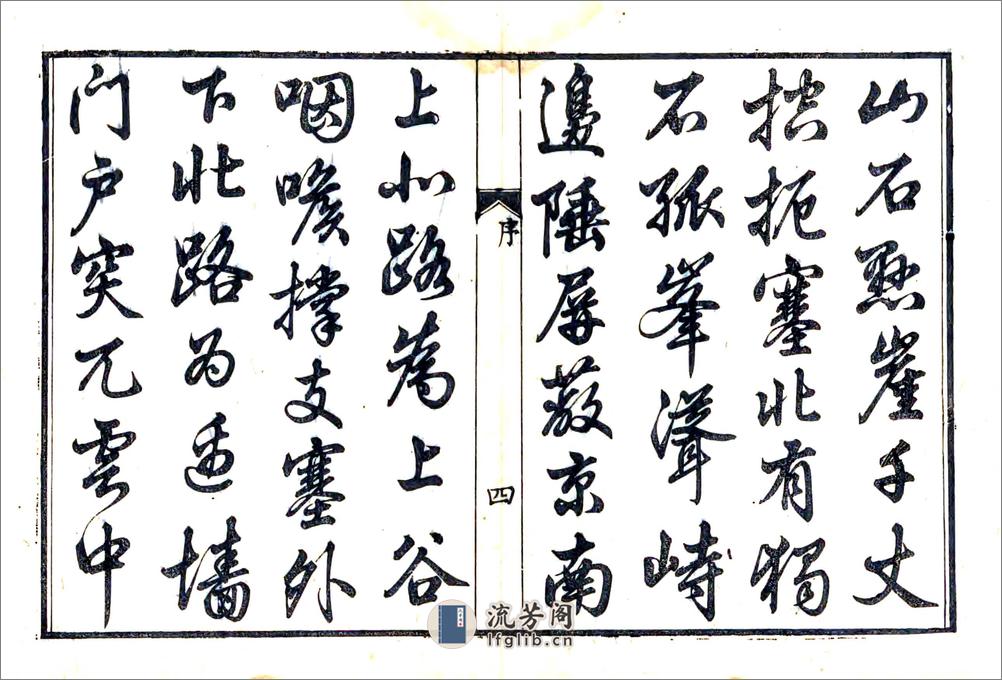 山石懸崖千丈
拱扼塞北有獨
石孤峯聳峙
邊陲屏蔽京南
序
四
上北路為上谷
咽喉撐支塞外
下北路為邊墻
門户突兀雲中
流芳阁
lfglib.cn